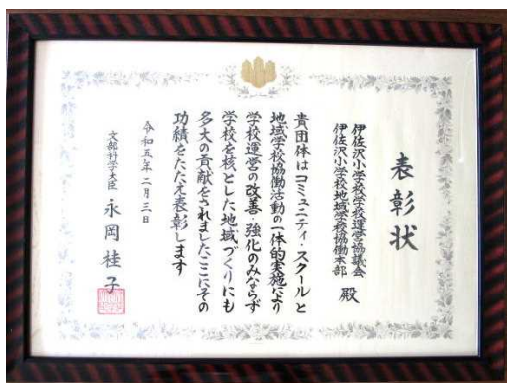 表彰状
伊佐沢小学校学校運営協議会
伊佐沢小学校地域学校協働本部
殿
貴団体はコミュニティ・スクールと
地域学校協働活動の一体的実施により
学校運営の改善・強化のみならず
学校を核とした地域づくりにも
多大の貢献をされましたここにその
功績をたたえ表彰します
令和五年二月三日
文部科学大臣 永岡桂子